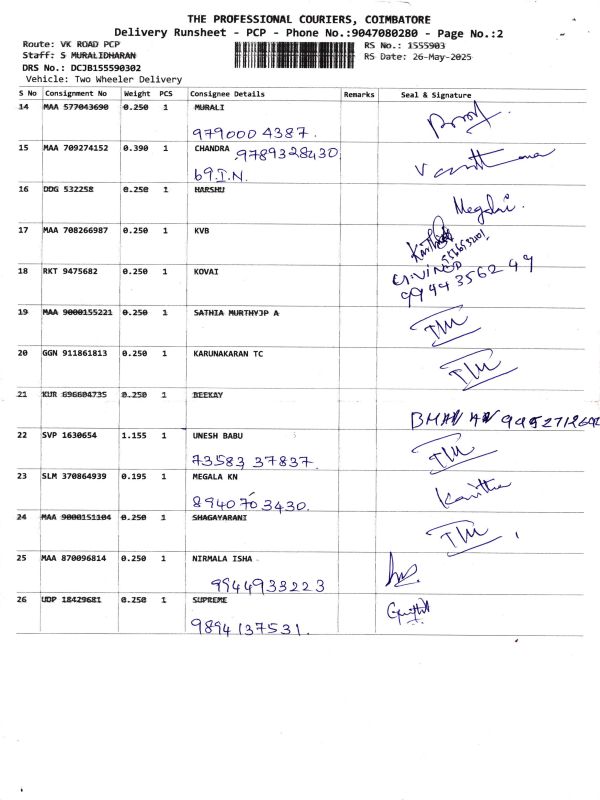 THE PROFESSIONAL COURIERS, COIMBATORE
Delivery Runsheet - PCP - Phone No.:9047080280 - Page No.:2
Route: VK ROAD PCP
RS No.: 1555903
Staff: S MURALIDHARAN
RS Date: 26-May-2025
DRS No.: DCJB155590302
Vehicle: Two Wheeler Delivery
S No Consignment No Weight PCS Consignee Details Remarks Seal & Signature
14 MAA 577043690 0.250 1 MURALI
979000 4387.
15 MAA 709274152 0.390 1 CHANDRA 9789328430
69 I.N.
16 DDG 532258 0.250 1 HARSHU
Megala.
17 MAA 708266987 0.250 1 KVB
18 RKT 9475682 0.250 1 KOVAI
GOVIND
99443562 49
19 MAA 9000155221 0.250 1 SATHIA MURTHYJP A
20 GGN 911861813 0.250 1 KARUNAKARAN TC
21 KUR 696604735 0.250 1 BEEKAY
22 SVP 1630654 1.155 1 UNESH BABU
73583 37837.
23 SLM 370864939 0.195 1 MEGALA KN Kavitha
8940703430.
24 MAA 9000151104 0.250 1 SHAGAYARANI
25 MAA 870096814 0.250 1 NIRMALA ISHA
9944933223
26 UDP 18429681 0.250 1 SUPREME
9894137531.